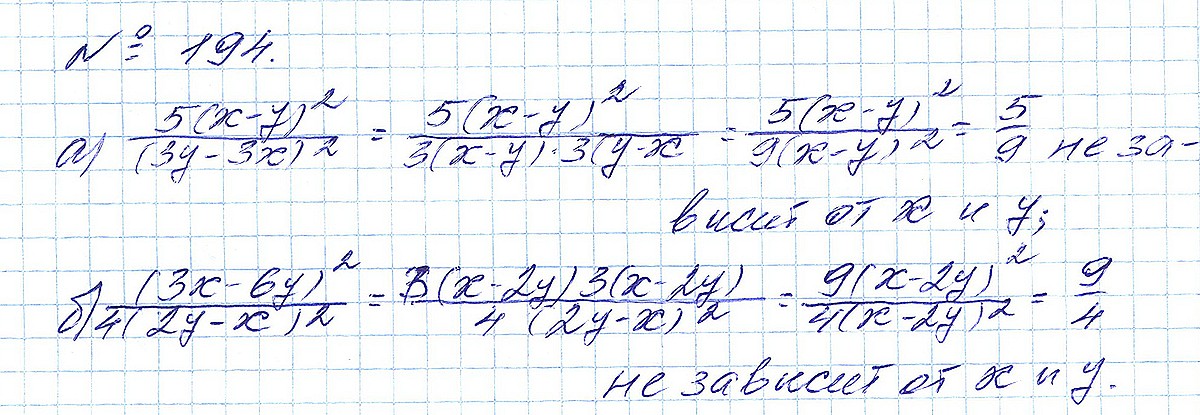 № 194.
а) \frac{5(x-y)^2}{(3y-3x)^2} = \frac{5(x-y)^2}{3(x-y)·3(y-x} = \frac{5(x-y)^2}{9(x-y)^2} = \frac{5}{9} не за-
висит от x и y;
б) \frac{(3x-6y)^2}{4(2y-x)^2} = \frac{3(x-2y)3(x-2y)}{4(2y-x)^2} = \frac{9(x-2y)^2}{4(x-2y)^2} = \frac{9}{4}
не зависит от x и y.